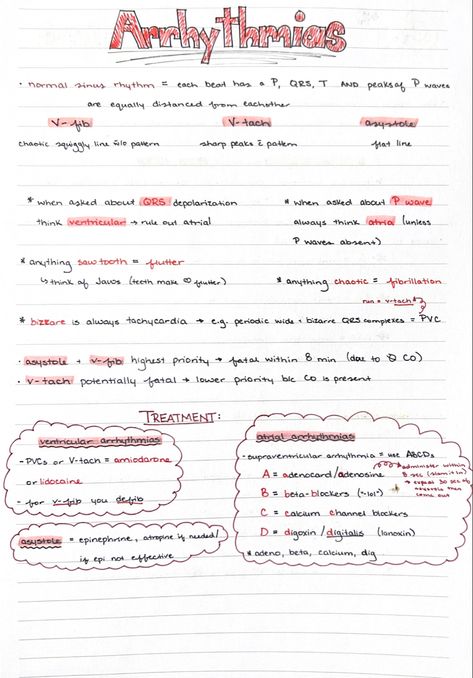 Arrhythmias
· normal sinus rhythm = each beat has a P, QRS, T AND peaks of P waves
are equally distanced from eachother
V-fib
chaotic squiggly line w/o pattern
V-tach
sharp peaks c̄ pattern
asystole
flat line
* when asked about QRS depolarization
think ventricular → rule out atrial
* when asked about P wave
always think atria (unless
P waves absent)
* anything saw tooth = flutter
↳ think of Jaws (teeth make ∞ flutter)
* anything chaotic = fibrillation
run = v-tach
* bizzare is always tachycardia → e.g. periodic wide + bizarre QRS complexes = PVC
· asystole + v-fib highest priority → fatal within 8 min (due to Ø CO)
· v-tach potentially fatal → lower priority b/c CO is present
TREATMENT:
ventricular arrhythmias
- PVCs or V-tach = amiodarone
or lidocaine
- for v-fib you defib
asystole = epinephrine, atropine if needed/
if epi not effective
atrial arrhythmias
- supraventricular arrhythmia = use ABCDs
A = adenocard/adenosine
administer within
8 sec (slam it in)
→ expect 30 sec of
asystole then
come out
B = beta-blockers (-lol)
C = calcium channel blockers
D = digoxin / digitalis (lanoxin)
* adeno, beta, calcium, dig